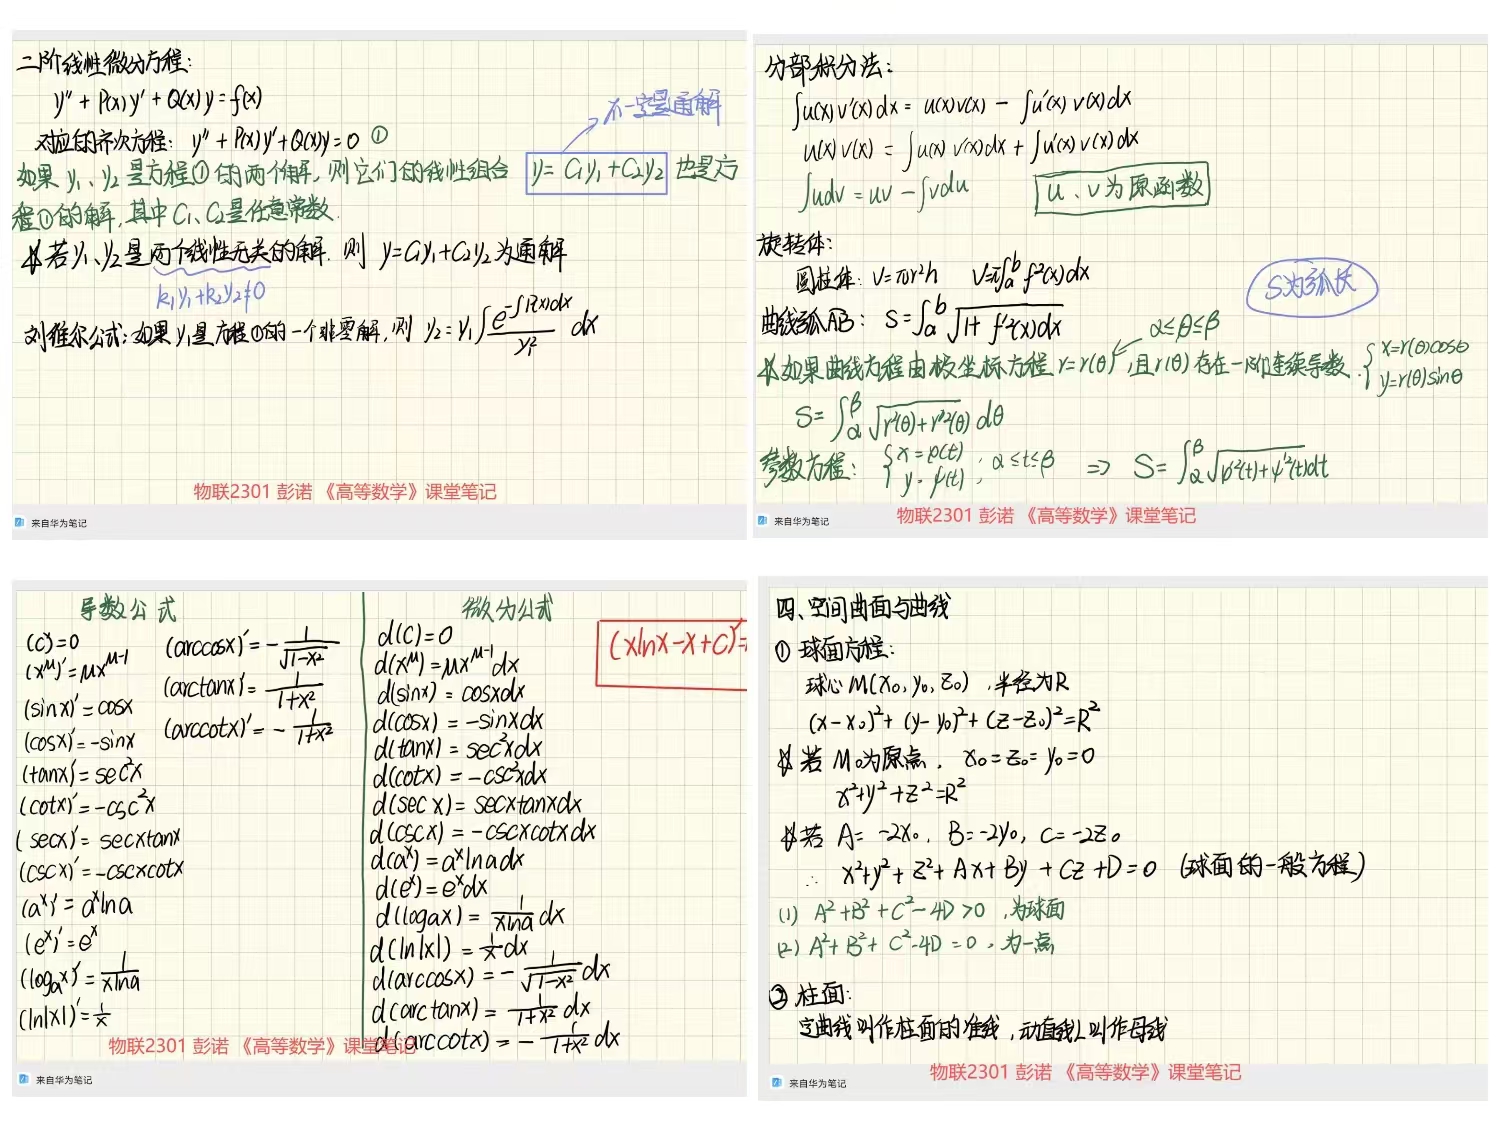 二阶线性微分方程:
y″ + P(x)y′ + Q(x)y = f(x)
不一定是通解
对应的齐次方程: y″ + P(x)y′ + Q(x)y = 0 ①
如果 y₁、y₂ 是方程①的两个解, 则它们的线性组合 y = C₁y₁ + C₂y₂ 也是方
程①的解, 其中 C₁、C₂是任意常数.
若 y₁、y₂ 是两个线性无关的解, 则 y = C₁y₁ + C₂y₂ 为通解
k₁y₁ + k₂y₂ ≠ 0
刘维尔公式: 如果 y₁是方程①的一个非零解, 则 y₂ = y₁∫ e^(-∫P(x)dx) / y₁² dx
物联2301 彭诺 《高等数学》课堂笔记
来自华为笔记
分部积分法:
∫u(x)v′(x)dx = u(x)v(x) − ∫u′(x)v(x)dx
u(x)v(x) = ∫u(x)v′(x)dx + ∫u′(x)v(x)dx
∫udv = uv − ∫vdu u、v为原函数
旋转体:
圆柱体: V = πr²h V = π∫ₐᵇ f²(x)dx
S为弧长
曲线弧AB: S = ∫ₐᵇ √(1 + f′²(x)dx)
α≤θ≤β
如果曲线方程由极坐标方程 r = r(θ), 且 r(θ) 存在一阶连续导数. { x = r(θ)cosθ
y = r(θ)sinθ
S = ∫_α^β √(r²(θ) + r′²(θ)) dθ
参数方程: { x = φ(t) ; α ≤ t ≤ β ⇒ S = ∫_α^β √(φ′²(t) + ψ′²(t)dt)
y = ψ(t)
物联2301 彭诺 《高等数学》课堂笔记
来自华为笔记
导数公式
(C)′ = 0
(x^μ)′ = μx^(μ-1)
(sinx)′ = cosx
(cosx)′ = -sinx
(tanx)′ = sec²x
(cotx)′ = -csc²x
(secx)′ = secxtanx
(cscx)′ = -cscxcotx
(aˣ)′ = aˣlna
(eˣ)′ = eˣ
(logₐx)′ = 1/(xlna)
(ln|x|)′ = 1/x
(arccosx)′ = -1/√(1-x²)
(arctanx)′ = 1/(1+x²)
(arccotx)′ = -1/(1+x²)
微分公式
d(C) = 0
d(x^μ) = μx^(μ-1)dx
d(sinx) = cosxdx
d(cosx) = -sinxdx
d(tanx) = sec²xdx
d(cotx) = -csc²xdx
d(secx) = secxtanxdx
d(cscx) = -cscxcotxdx
d(aˣ) = aˣlnadx
d(eˣ) = eˣdx
d(logax) = 1/(xlna) dx
d(ln|x|) = 1/x dx
d(arccosx) = -1/√(1-x²) dx
d(arctanx) = 1/(1+x²) dx
d(arccotx) = -1/(1+x²) dx
(xlnx-x+C)′=
物联2301 彭诺 《高等数学》课堂笔记
来自华为笔记
四、空间曲面与曲线
① 球面方程:
球心 M(x₀, y₀, z₀), 半径为R
(x-x₀)² + (y-y₀)² + (z-z₀)² = R²
若 M₀为原点, x₀ = z₀ = y₀ = 0
x² + y² + z² = R²
若 A = -2x₀, B = -2y₀, C = -2z₀
∴ x² + y² + z² + Ax + By + Cz + D = 0 (球面的一般方程)
(1) A² + B² + C² - 4D > 0, 为球面
(2) A² + B² + C² - 4D = 0, 为一点
② 柱面:
定曲线叫作柱面的准线, 动直线L叫作母线
物联2301 彭诺 《高等数学》课堂笔记
来自华为笔记